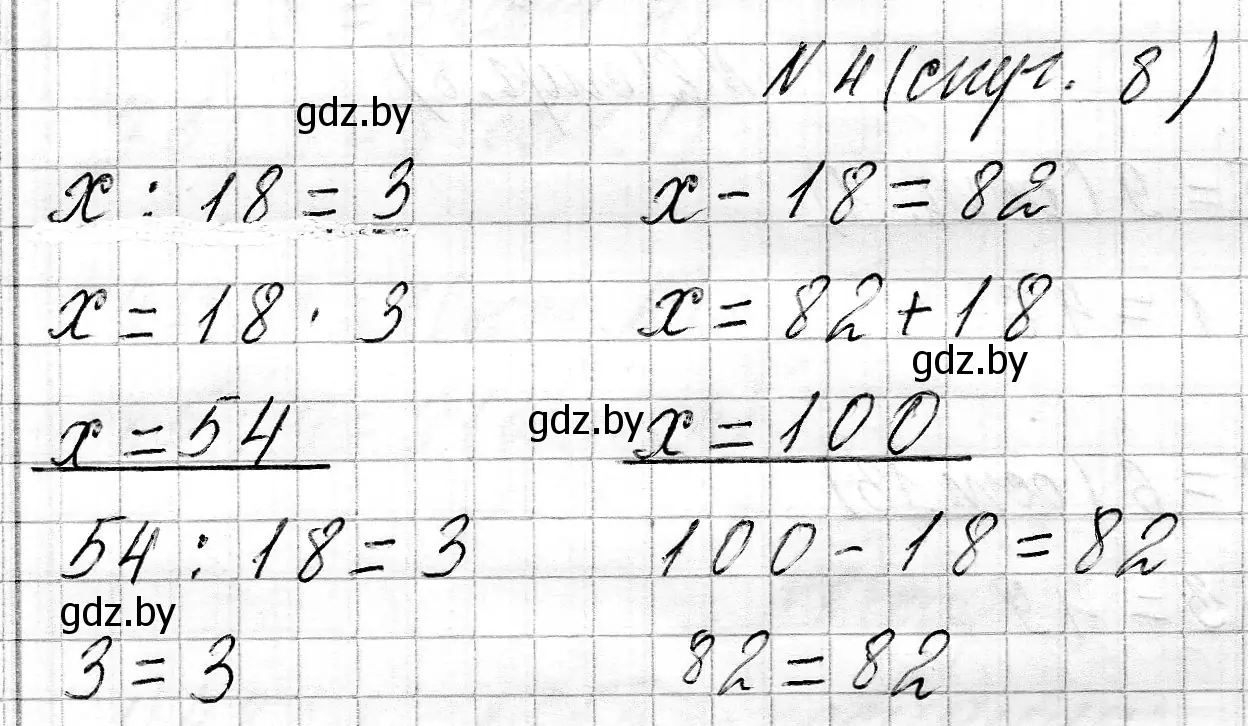 N 4 (стр. 8)
gdz.by
x : 18 = 3
x - 18 = 82
x = 18 · 3
x = 82 + 18
gdz.by
x = 54
gdz.by
x = 100
54 : 18 = 3
100 - 18 = 82
gdz.by
3 = 3
82 = 82